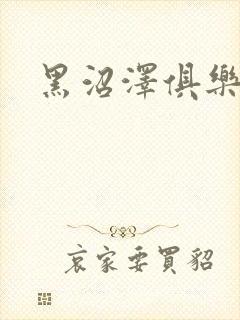 黑沼澤俱樂
哀家要買貂